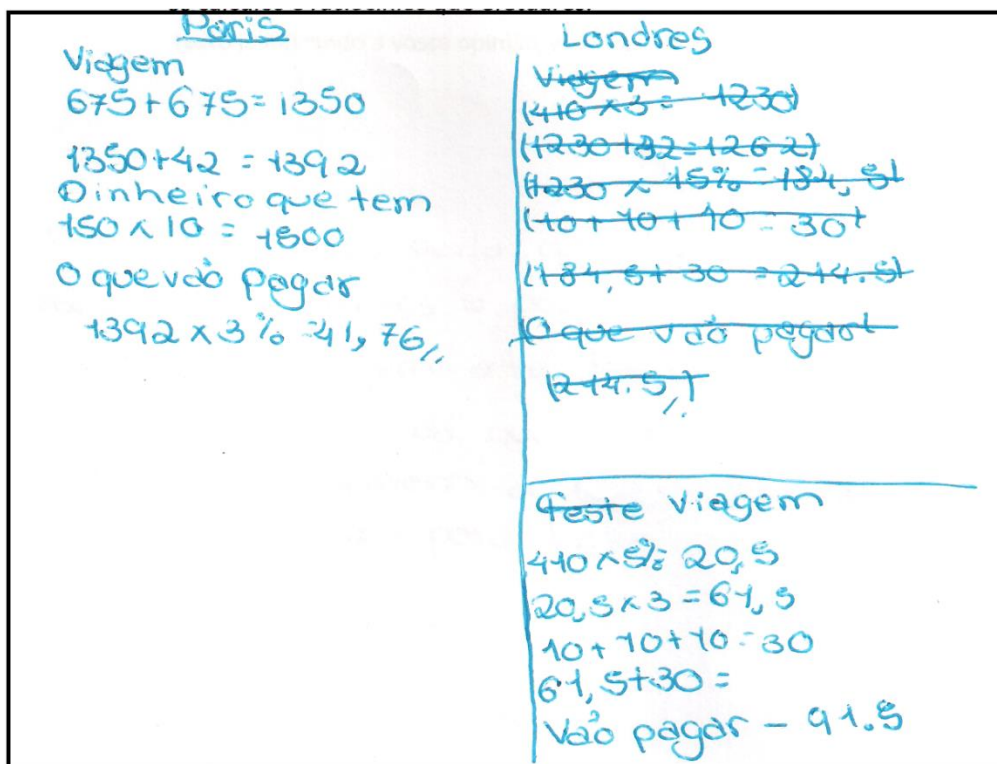 Paris
Viagem
675+675=1350
1350+42 = 1392
Dinheiro que tem
150 x 10 = 1500
O que vão pagar
1392 x 3% = 41,76//
Londres
Viagem
(410 x 3 = 1230)
(1230+32=1262)
(1230 x 15% = 184,5)
(10+10+10 = 30)
(184,5+30 = 214.5)
(O que vão pagar)
(214.5//)
Teste Viagem
410 x 5% = 20,5
20,5 x 3 = 61,5
10+10+10=30
61,5+30 =
Vão pagar - 91.5